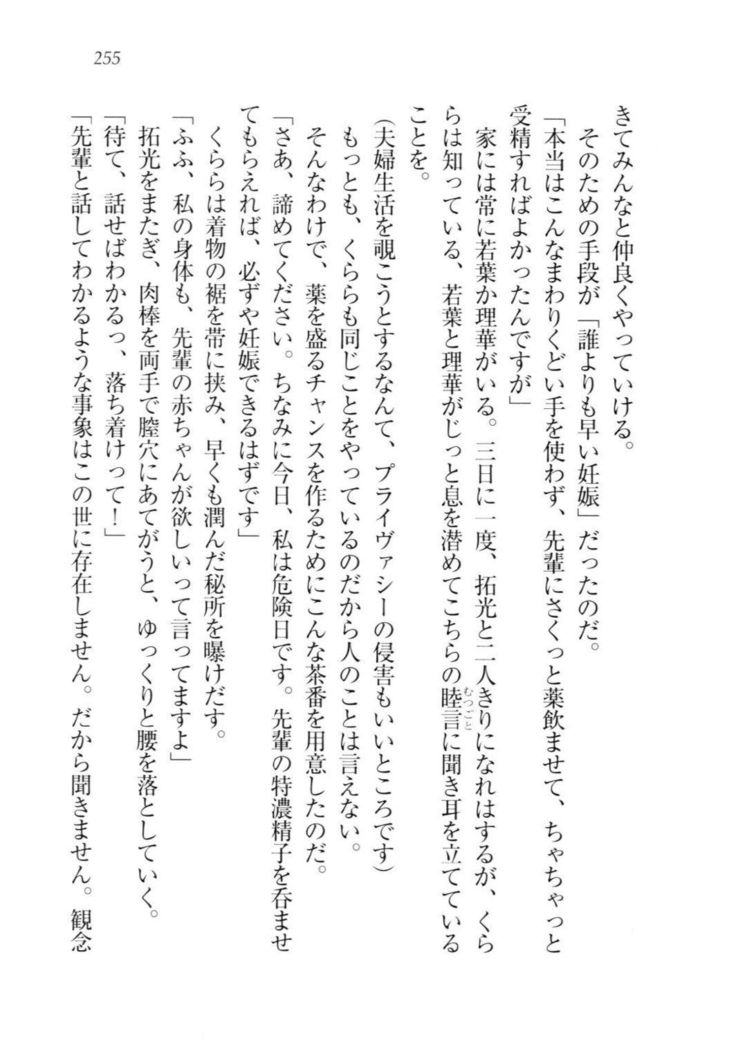 255
きてみんなと仲良くやっていける。
そのための手段が「誰よりも早い妊娠」だったのだ。
「本当はこんなまわりくどい手を使わず、先輩にさくっと薬飲ませて、ちゃちゃっと
受精すればよかったんですが」
家には常に若葉か理華がいる。三日に一度、拓光と二人きりになれはするが、くら
らは知っている、若葉と理華がじっと息を潜めてこちらの睦言むつごとに聞き耳を立てている
ことを。
(夫婦生活を覗こうとするなんて、プライヴァシーの侵害もいいところです)
もっとも、くららも同じことをやっているのだから人のことは言えない。
そんなわけで、薬を盛るチャンスを作るためにこんな茶番を用意したのだ。
「さあ、諦めてください。ちなみに今日、私は危険日です。先輩の特濃精子を呑ませ
てもらえれば、必ずや妊娠できるはずです」
くららは着物の裾を帯に挟み、早くも潤んだ秘所を曝けだす。
「ふふ、私の身体も、先輩の赤ちゃんが欲しいって言ってますよ」
拓光をまたぎ、肉棒を両手で膣穴にあてがうと、ゆっくりと腰を落としていく。
「待て、話せばわかるっ、落ち着けって！」
「先輩と話してわかるような事象はこの世に存在しません。だから聞きません。観念